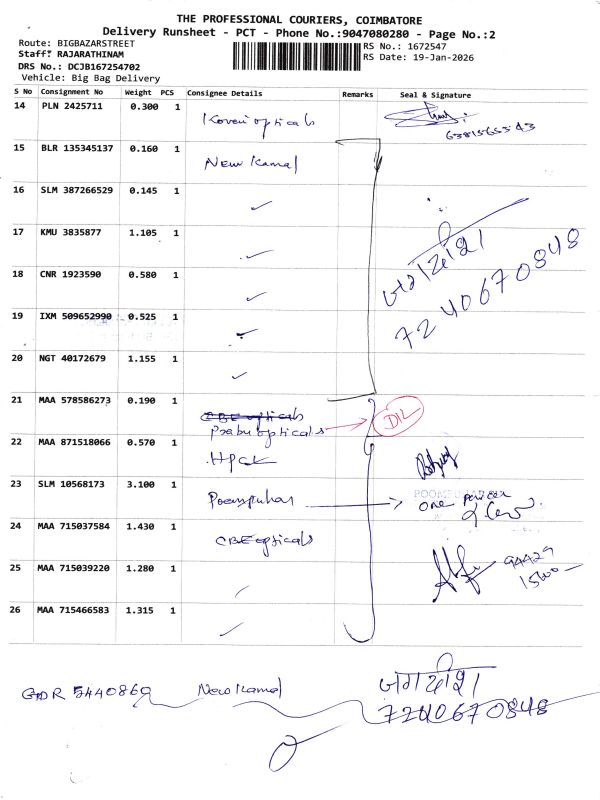 THE PROFESSIONAL COURIERS, COIMBATORE
Delivery Runsheet - PCT - Phone No.:9047080280 - Page No.:2
Route: BIGBAZARSTREET
Staff: RAJARATHINAM
DRS No.: DCJB167254702
Vehicle: Big Bag Delivery
RS No.: 1672547
RS Date: 19-Jan-2026
S No Consignment No Weight PCS Consignee Details Remarks Seal & Signature
14 PLN 2425711 0.300 1 Kovai opticals
6381565543
15 BLR 135345137 0.160 1 New Kamal
16 SLM 387266529 0.145 1 ✓
17 KMU 3835877 1.105 1 ✓
18 CNR 1923590 0.580 1 ✓
जगदीश
7240670848
19 IXM 509652990 0.525 1 ✓
20 NGT 40172679 1.155 1 ✓
21 MAA 578586273 0.190 1 CBE opticals
Prabu opticals → DIL
22 MAA 871518066 0.570 1 HPCL
23 SLM 10568173 3.100 1 Poompuhar → one
24 MAA 715037584 1.430 1 CBE opticals
94429
1500
25 MAA 715039220 1.280 1 ✓
26 MAA 715466583 1.315 1 ✓
GDR 5440869 New Kamal जगदीश
7240670848